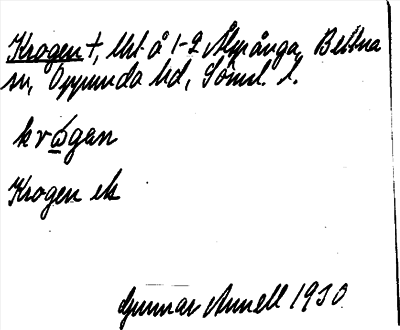 Krogen †, lht å 1-2 Älvrånga, Bettna
sn, Oppunda hd, Söml. l.
krωgan
Krogen ek
Gunnar Annell 1930